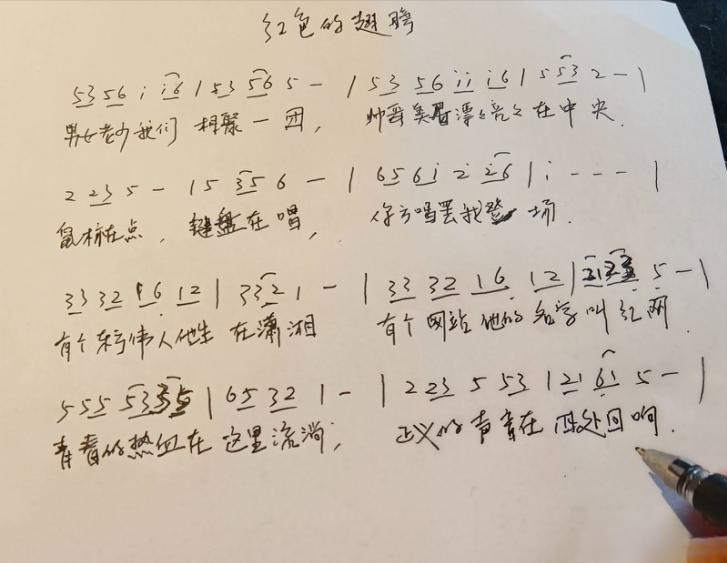 红色的翅膀
5356 i i6 | 53 56 5 - | 53 56 ii i6 | 5 53 2 - |
男女老少我们 相聚一团, 帅哥美眉漂々亮々在中央.
2 23 5 - | 5 35 6 - | 656i 2 26 | i - - - |
鼠标在点, 键盘在唱, 你方唱罢我登场.
33 32 16 12 | 3321 - | 33 32 16 12 | 5 - |
有个东方伟人他生在潇湘 有个网站他的名字叫红网.
5 55 53 35 | 65 32 1 - | 2 23 5 53 | 21 61 5 - |
青春的热血在这里流淌, 正义的声音在四处回响.